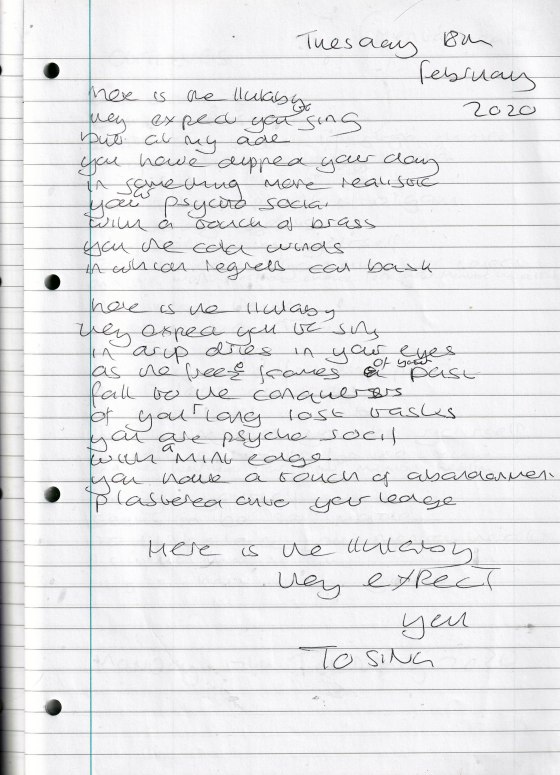 Tuesday 18th
february
2020
here is the llulaby
they expect you to sing
but at my age
you have dipped your day
in something more realistic
your psycho social
with a touch of brass
you the cold winds
in which regrets can bask
here is the llulaby
they expect you to sing
in drip dries in your eyes
as the freeze frames of your past
fall to the conquerers
of your long lost tasks
you are psycho socil
with a mint edge
you have a touch of abandonment
plastered onto your ledge
Here is the llulaby
they expect
you
TO SING